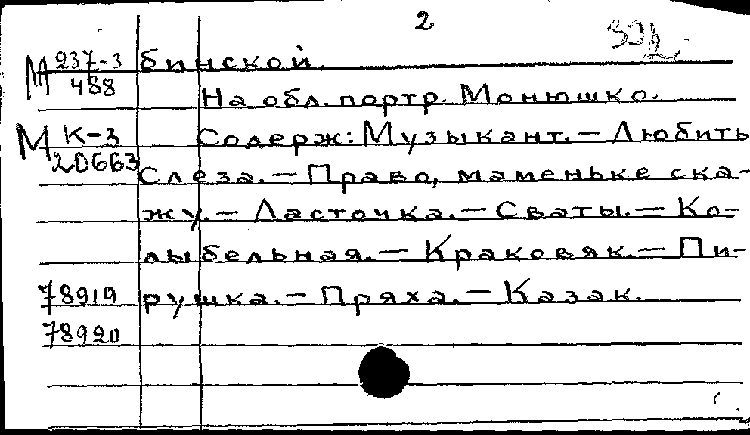 2
М 237-3 бинской.
488
На обл. портр. Монюшко.
М К-3 Содерж: Музыкант. – Любить
20663 Слеза. – Право, маменьке ска-
жу. – Ласточка. – Сваты. – Ко-
лыбельная. – Краковяк. – Пи-
78919 рушка. – Пряха. – Казак.
78920